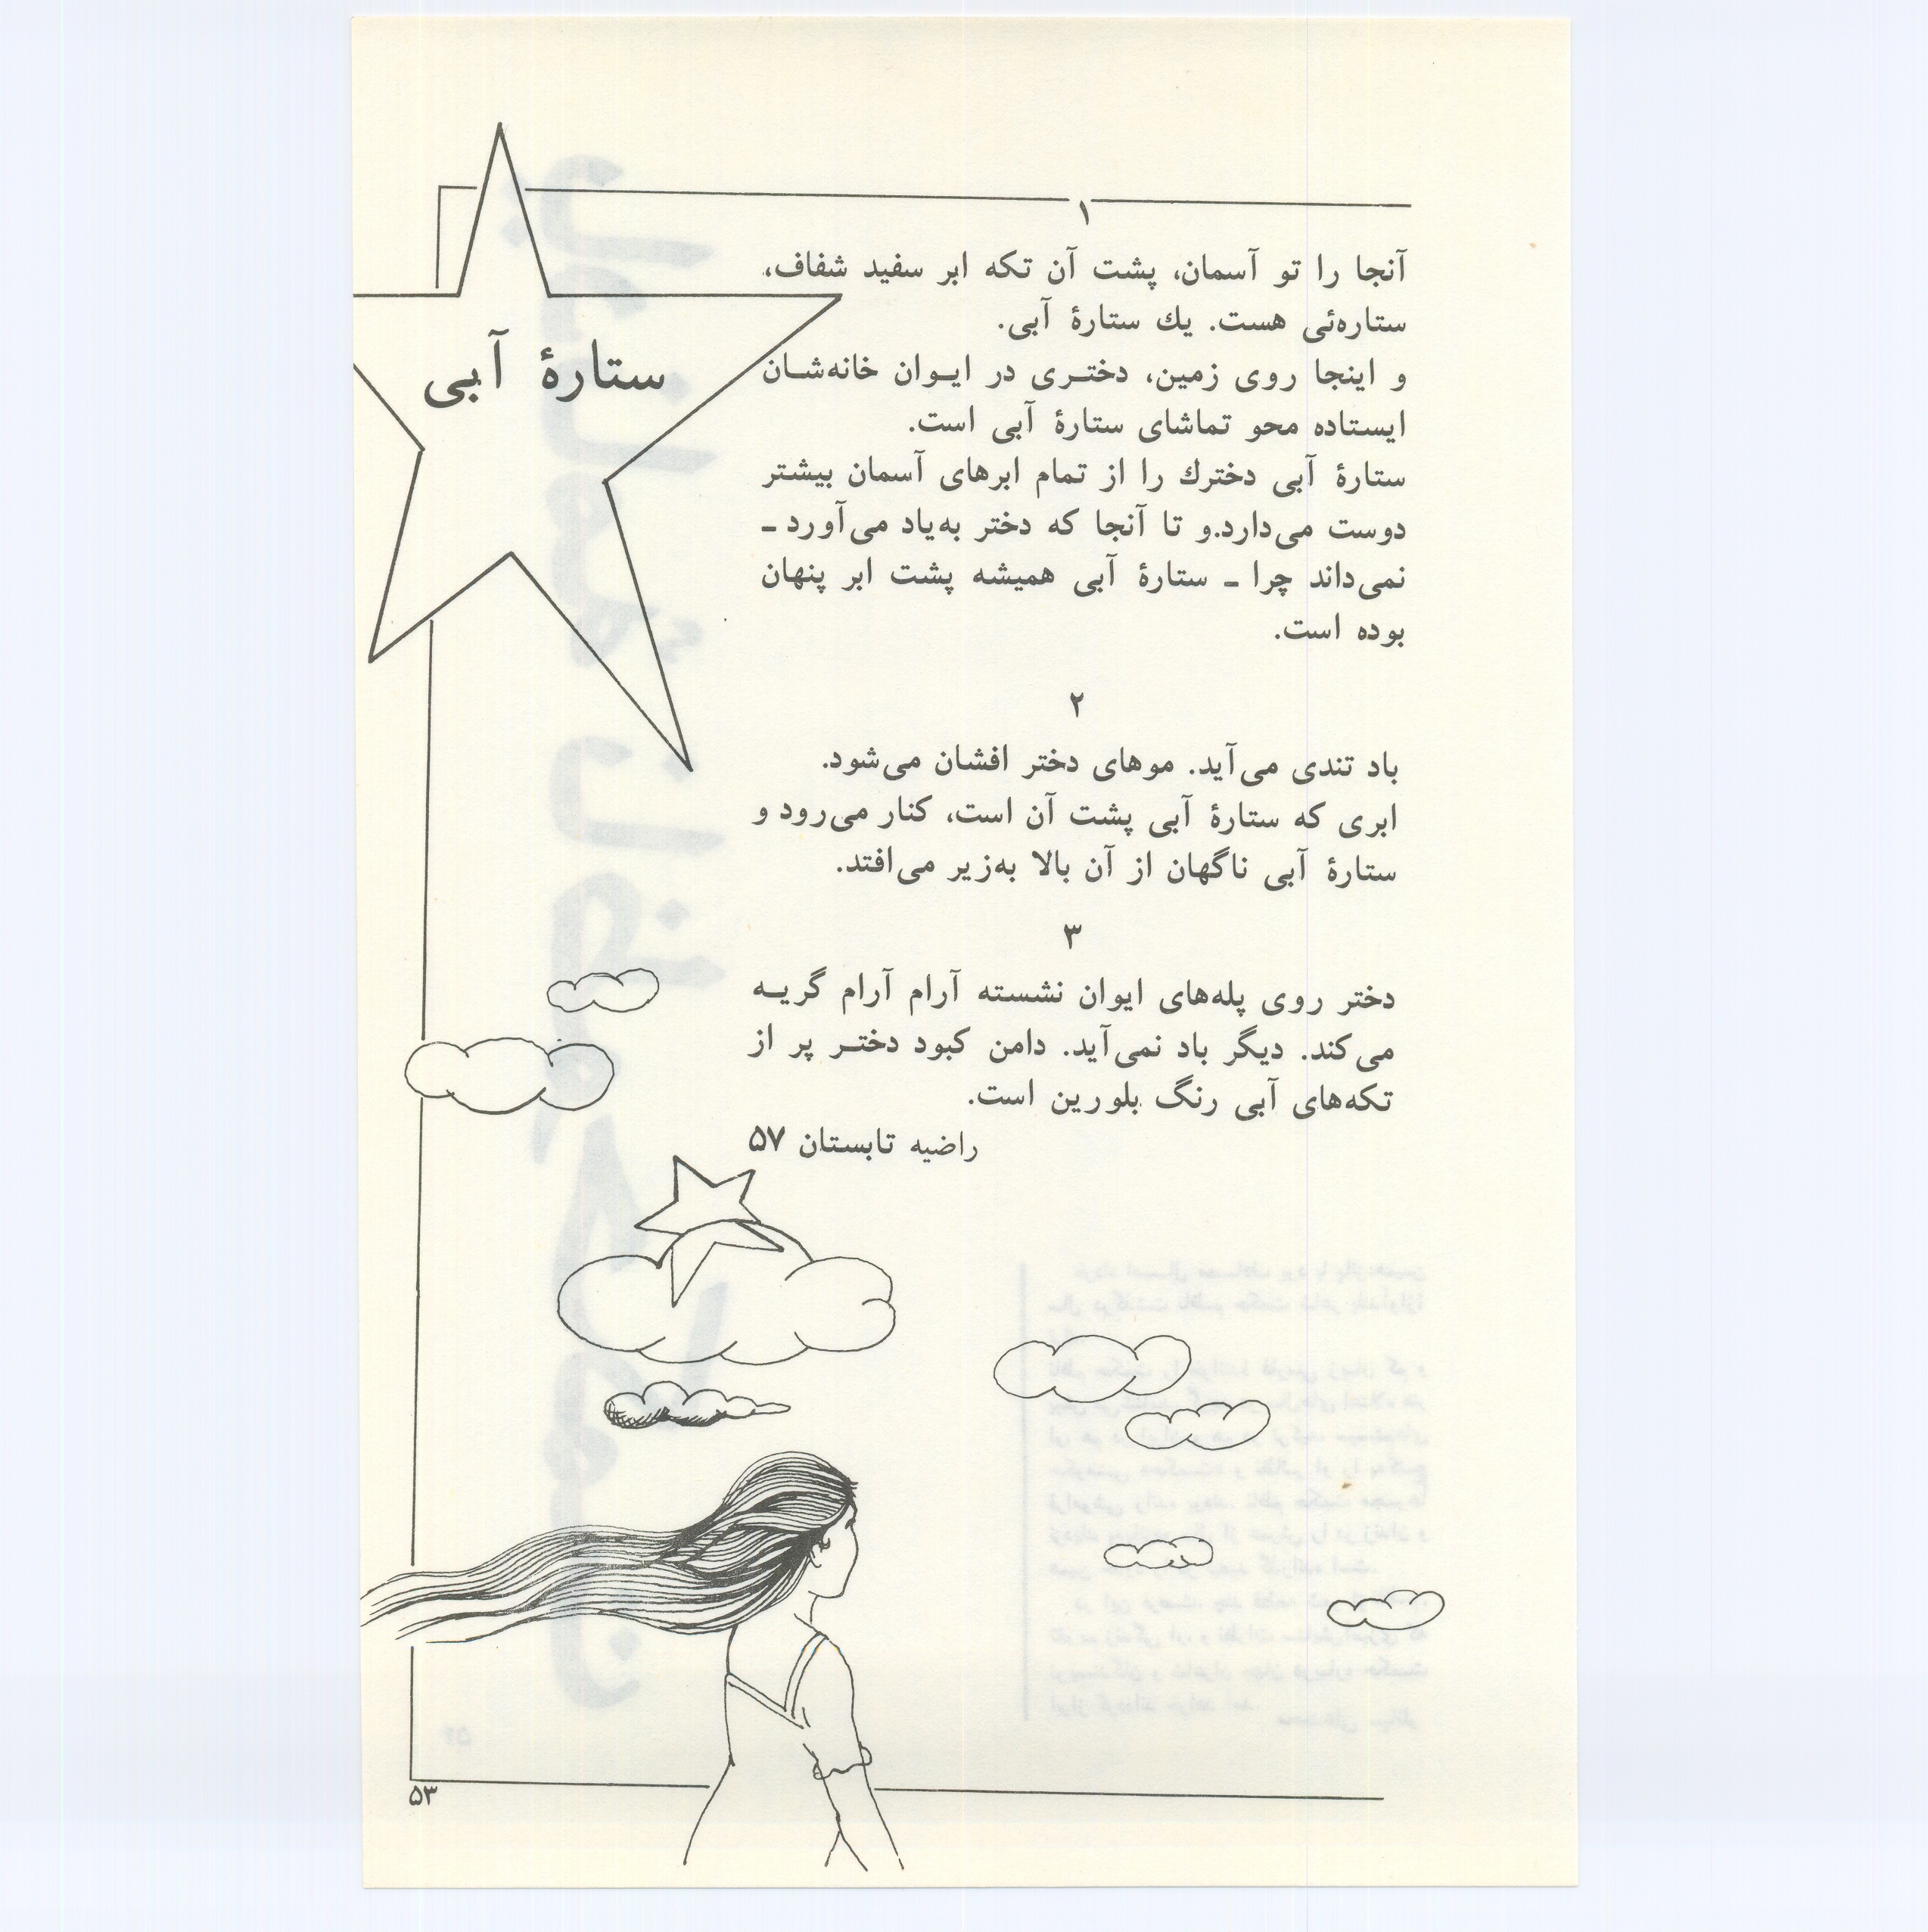 ستارهٔ آبی
۱
آنجا را تو آسمان، پشت آن تکه ابر سفید شفاف،
ستاره‌ئی هست. یك ستارهٔ آبی.
و اینجا روی زمین، دختـری در ایـوان خانه‌شـان
ایستاده محو تماشای ستارهٔ آبی است.
ستارهٔ آبی دخترك را از تمام ابرهای آسمان بیشتر
دوست می‌دارد.و تا آنجا که دختر به‌یاد می‌آورد ـ
نمی‌داند چرا ـ ستارهٔ آبی همیشه پشت ابر پنهان
بوده است.
۲
باد تندی می‌آید. موهای دختر افشان می‌شود.
ابری که ستارهٔ آبی پشت آن است، کنار می‌رود و
ستارهٔ آبی ناگهان از آن بالا به‌زیر می‌افتد.
۳
دختر روی پله‌های ایوان نشسته آرام آرام گریـه
می‌کند. دیگر باد نمی‌آید. دامن کبود دختـر پر از
تکه‌های آبی رنگ بلورین است.
راضیه تابستان ۵۷
۵۳